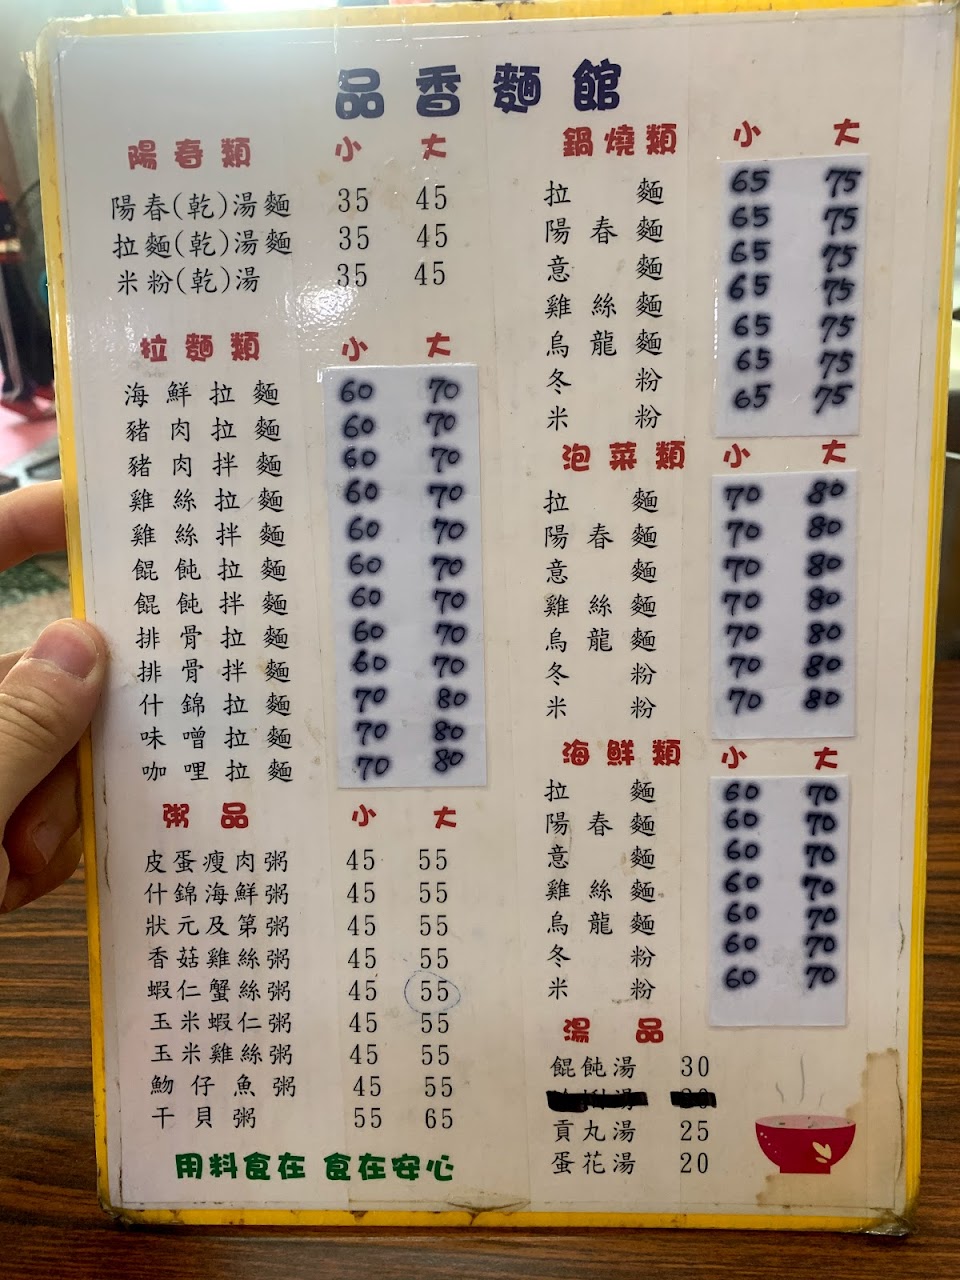 品香麵館
陽春類 小 大
陽春(乾)湯麵 35 45
拉麵(乾)湯麵 35 45
米粉(乾)湯 35 45
拉麵類 小 大
海鮮拉麵 60 70
豬肉拉麵 60 70
豬肉拌麵 60 70
雞絲拉麵 60 70
雞絲拌麵 60 70
餛飩拉麵 60 70
餛飩拌麵 60 70
排骨拉麵 60 70
排骨拌麵 60 70
什錦拉麵 70 80
味噌拉麵 70 80
咖哩拉麵 70 80
粥品 小 大
皮蛋瘦肉粥 45 55
什錦海鮮粥 45 55
狀元及第粥 45 55
香菇雞絲粥 45 55
蝦仁蟹絲粥 45 55
玉米蝦仁粥 45 55
玉米雞絲粥 45 55
魩仔魚粥 45 55
干貝粥 55 65
用料食在 食在安心
鍋燒類 小 大
拉麵 65 75
陽春麵 65 75
意麵 65 75
雞絲麵 65 75
烏龍麵 65 75
冬粉 65 75
米粉 65 75
泡菜類 小 大
拉麵 70 80
陽春麵 70 80
意麵 70 80
雞絲麵 70 80
烏龍麵 70 80
冬粉 70 80
米粉 70 80
海鮮類 小 大
拉麵 60 70
陽春麵 60 70
意麵 60 70
雞絲麵 60 70
烏龍麵 60 70
冬粉 60 70
米粉 60 70
湯品
餛飩湯 30
貢丸湯 25
蛋花湯 20